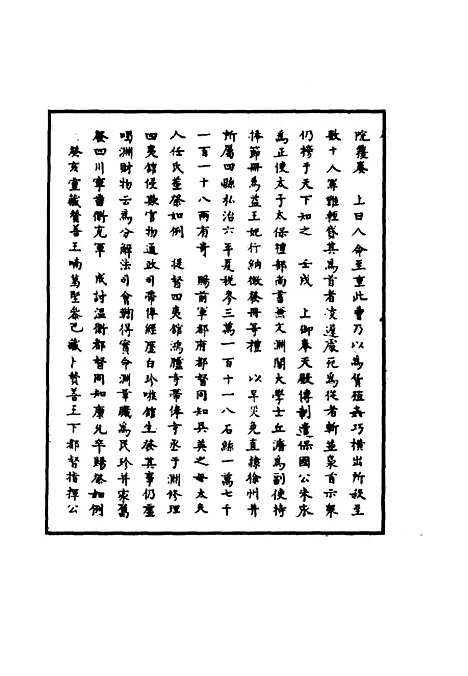 院覆奏　上曰人命至重此曹乃以為貨殖姦巧橫出所殺至
數十人罪難輕貸其為首者凌遲處死為從者斬並梟首示眾
仍榜于天下知之　壬戌　上御奉天殿傳制遣保國公朱永
為正使太子太保禮部尚書兼文淵閣大學士丘濬為副使持
捧節冊為益王妃行納徵發冊等禮　以旱災免直隸徐州并
所屬四縣弘治六年夏稅麥三萬一百十一八石絲一萬七千
一百一十八兩有奇　賜前軍都府都督同知吳英之母太夫
人任氏葬祭如例　提督四夷館鴻臚寺帶俸寺丞于淵修理
四夷館侵欺官物通政司帶俸經歷白珍嗾館生發其事仍虛
喝淵財物云為分解法司會鞫得實命淵革職為民珍并家屬
發四川寧番衛充軍　成討溫衛都督同知康允卒賜祭如例
癸亥靈藏贊善王喃葛堅參巴藏卜贊善王下都督指揮公